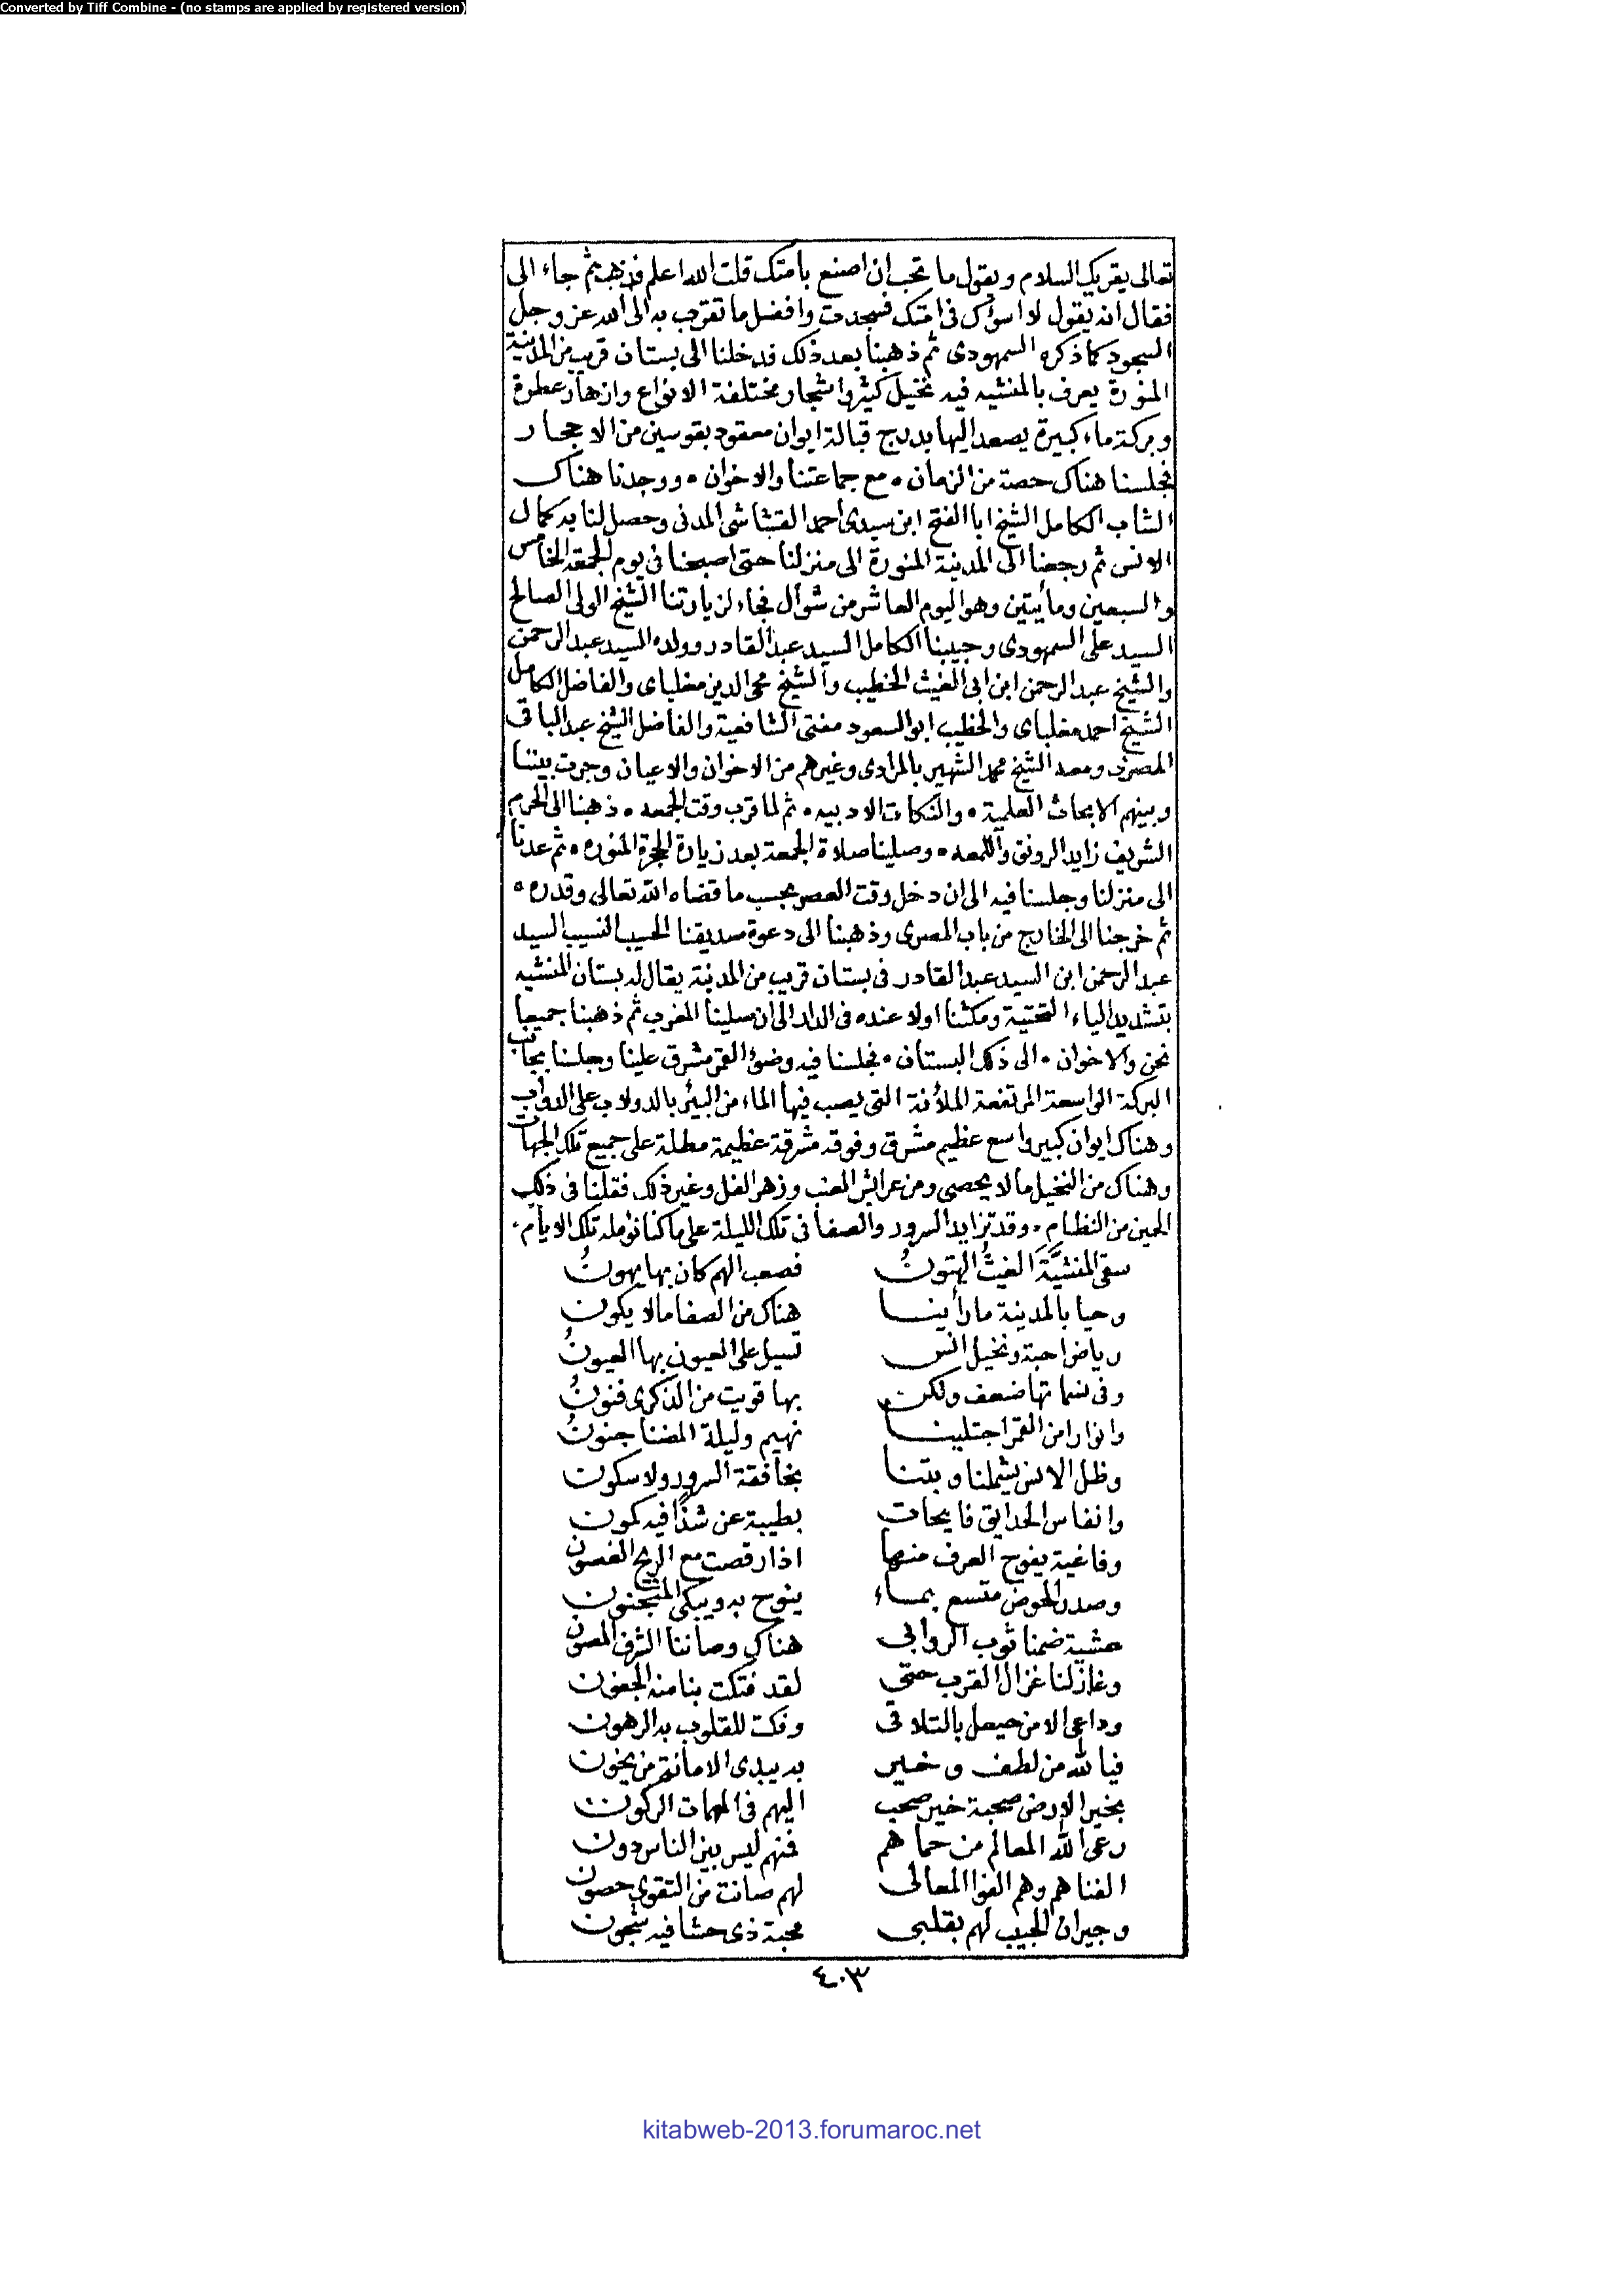 Converted by Tiff Combine - (no stamps are applied by registered version)
تعالى يقريك السلام ويقول ما تحب ان اصنع بامتك قلت الله اعلم فذهب ثم جاء الى
فقال انه يقول لا اسؤك فى امتك فسجدت وافضل ما تقرب به الى الله عز وجل
السجود كما ذكره السمهودى ثم ذهبنا بعد ذلك فدخلنا الى بستان قريب من المدينة
المنورة يعرف بالمنشيه فيه نخيل كثير واشجار مختلفة الانواع وازهار عطرة
وبركة ماء كبيرة يصعد اليها بدرج قبالة ايوان معقود بقوسين من الاحجار
فجلسنا هناك حصة من الزمان • مع جماعتنا والاخوان • ووجدنا هناك
الشاب الكامل الشيخ ابا الفتح ابن سيدى احمد القشاشى المدنى وحصل لنا به كمال
الانس ثم رجعنا الى المدينة المنورة الى منزلنا حتى اصبحنا فى يوم الجمعة الخامس
والسبعين ومأيتين وهو اليوم العاشر من شوال فجاء لزيارتنا الشيخ الولى الصالح
السيد على السمهودى وحبيبنا الكامل السيد عبد القادر وولده السيد عبد الرحمن
والشيخ عبد الرحمن ابن ابى الغيث الخطيب والشيخ محى الدين مغلباى والفاضل الكامل
الشيخ احمد مغلباى والخطيب ابو السعود مفتى الشافعية والفاضل الشيخ عبد الباقى
المصرى ومعه الشيخ محمد الشهير بالمرادى وغيرهم من الاخوان والاعيان وجرت بيننا
وبينهم الابحاث العلمية • والنكات الادبيه • ثم لما قرب وقت الجمعه • ذهبنا الى الحرم
الشريف زايد الرونق واللمعه • وصلينا صلاة الجمعة بعد زيارة الحجرة المنوره • ثم عدنا
الى منزلنا وجلسنا فيه الى ان دخل وقت العصر بحسب ما قضاه الله تعالى وقدره •
ثم خرجنا الى الخارج من باب المصرى وذهبنا الى دعوة صديقنا الحسيب النسيب السيد
عبد الرحمن ابن السيد عبد القادر فى بستان قريب من المدينة يقال له بستان المنشيه
بتشديد الياء التحتية ومكثنا اولا عنده فى الدار الى ان صلينا المغرب ثم ذهبنا جميعا
نحن والاخوان • الى ذلك البستان • فجلسنا فيه وضوء القمر مشرق علينا وجلسنا بجانب
البركة الواسعة المرتفعة الملأنة التى يصب فيها الماء من البئر بالدولاب على الدواب
وهناك ايوان كبير واسع عظيم مشرق وفوقه مشرقة عظيمة مطلة على جميع تلك الجهات
وهناك من النخيل ما لا يحصى ومن عرايش العنب وزهر الفل وغير ذلك فقلنا فى ذلك
الحين من النظام • وقد تزايد السرور والصفا فى تلك الليلة على ما كنا نؤمله تلك الايام •
سقى المنشيَّةَ الغيثُ الهتونُ فصعب الهم كان بها يهونُ
وحيا بالمدينة ما رأينا هناك من الصفا ما لا يكون
رياض احبة ونخيل انس تسيل على العيون بها العيونُ
وفى نسماتها ضعف ولكن بها قويت من الذكرى فنونُ
وانوارا من القمر اجتلينا نهيم وليلة المضنا جنونُ
وظل الانس يشملنا وبتنا بخافقة السرور ولا سكون
وانفاس الحدايق فايحات بطيبة عن شذًا فيه كمون
وفاغية يفوح العرف منها اذا رقصت مع الريح الغصون
وصدر الحوض متسع بماء ينوح به ويبكى المنجنون
عشية ضمنا ثوب الروابى هناك وصاننا الشرف المصون
وغازلنا غزال القرب حتى لقد فتكت بنا منه الجفون
وداعى الامن حيعل بالتلاقى وفكت للقلوب به الرهون
فيا لله من لطف وخير به يبدى الامانة من يخون
بخير الارض صحبة خير صحب اليهم فى المهمات الركون
رعى الله المعالم من حماهم فمنهم ليس بين الناس دون
الفناهم وهم الفوا المعالى لهم صانت من التقوى حصون
وجيران الحبيب لهم بقلبى محبة ذى حشا فيه شجون
٤٠٣
kitabweb-2013.forumaroc.net